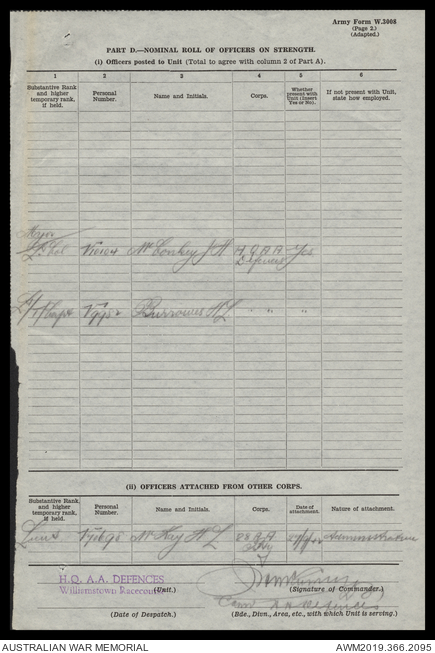 Army Form W.3008
(Page 2.)
(Adapted.)
PART D.—NOMINAL ROLL OF OFFICERS ON STRENGTH.
(i) Officers posted to Unit (Total to agree with column 2 of Part A).
1 2 3 4 5 6
Substantive Rank and higher temporary rank, if held. Personal Number. Name and Initials. Corps. Whether present with Unit (Insert Yes or No). If not present with Unit, state how employed.
Major
Lt Col McConkey J H H Q A A Yes
Defences
Burrowes H L " " "
(ii) OFFICERS ATTACHED FROM OTHER CORPS.
Substantive Rank and higher temporary rank, if held. Personal Number. Name and Initials. Corps. Date of attachment. Nature of attachment.
Lieut McKay H L Administration
H.Q. A.A. DEFENCES
Williamstown Racecourse
(Unit.)
(Signature of Commander.)
Comd AA Defences
(Date of Despatch.)
(Bde., Divn., Area, etc., with which Unit is serving.)
AUSTRALIAN WAR MEMORIAL
AWM2019.366.2095